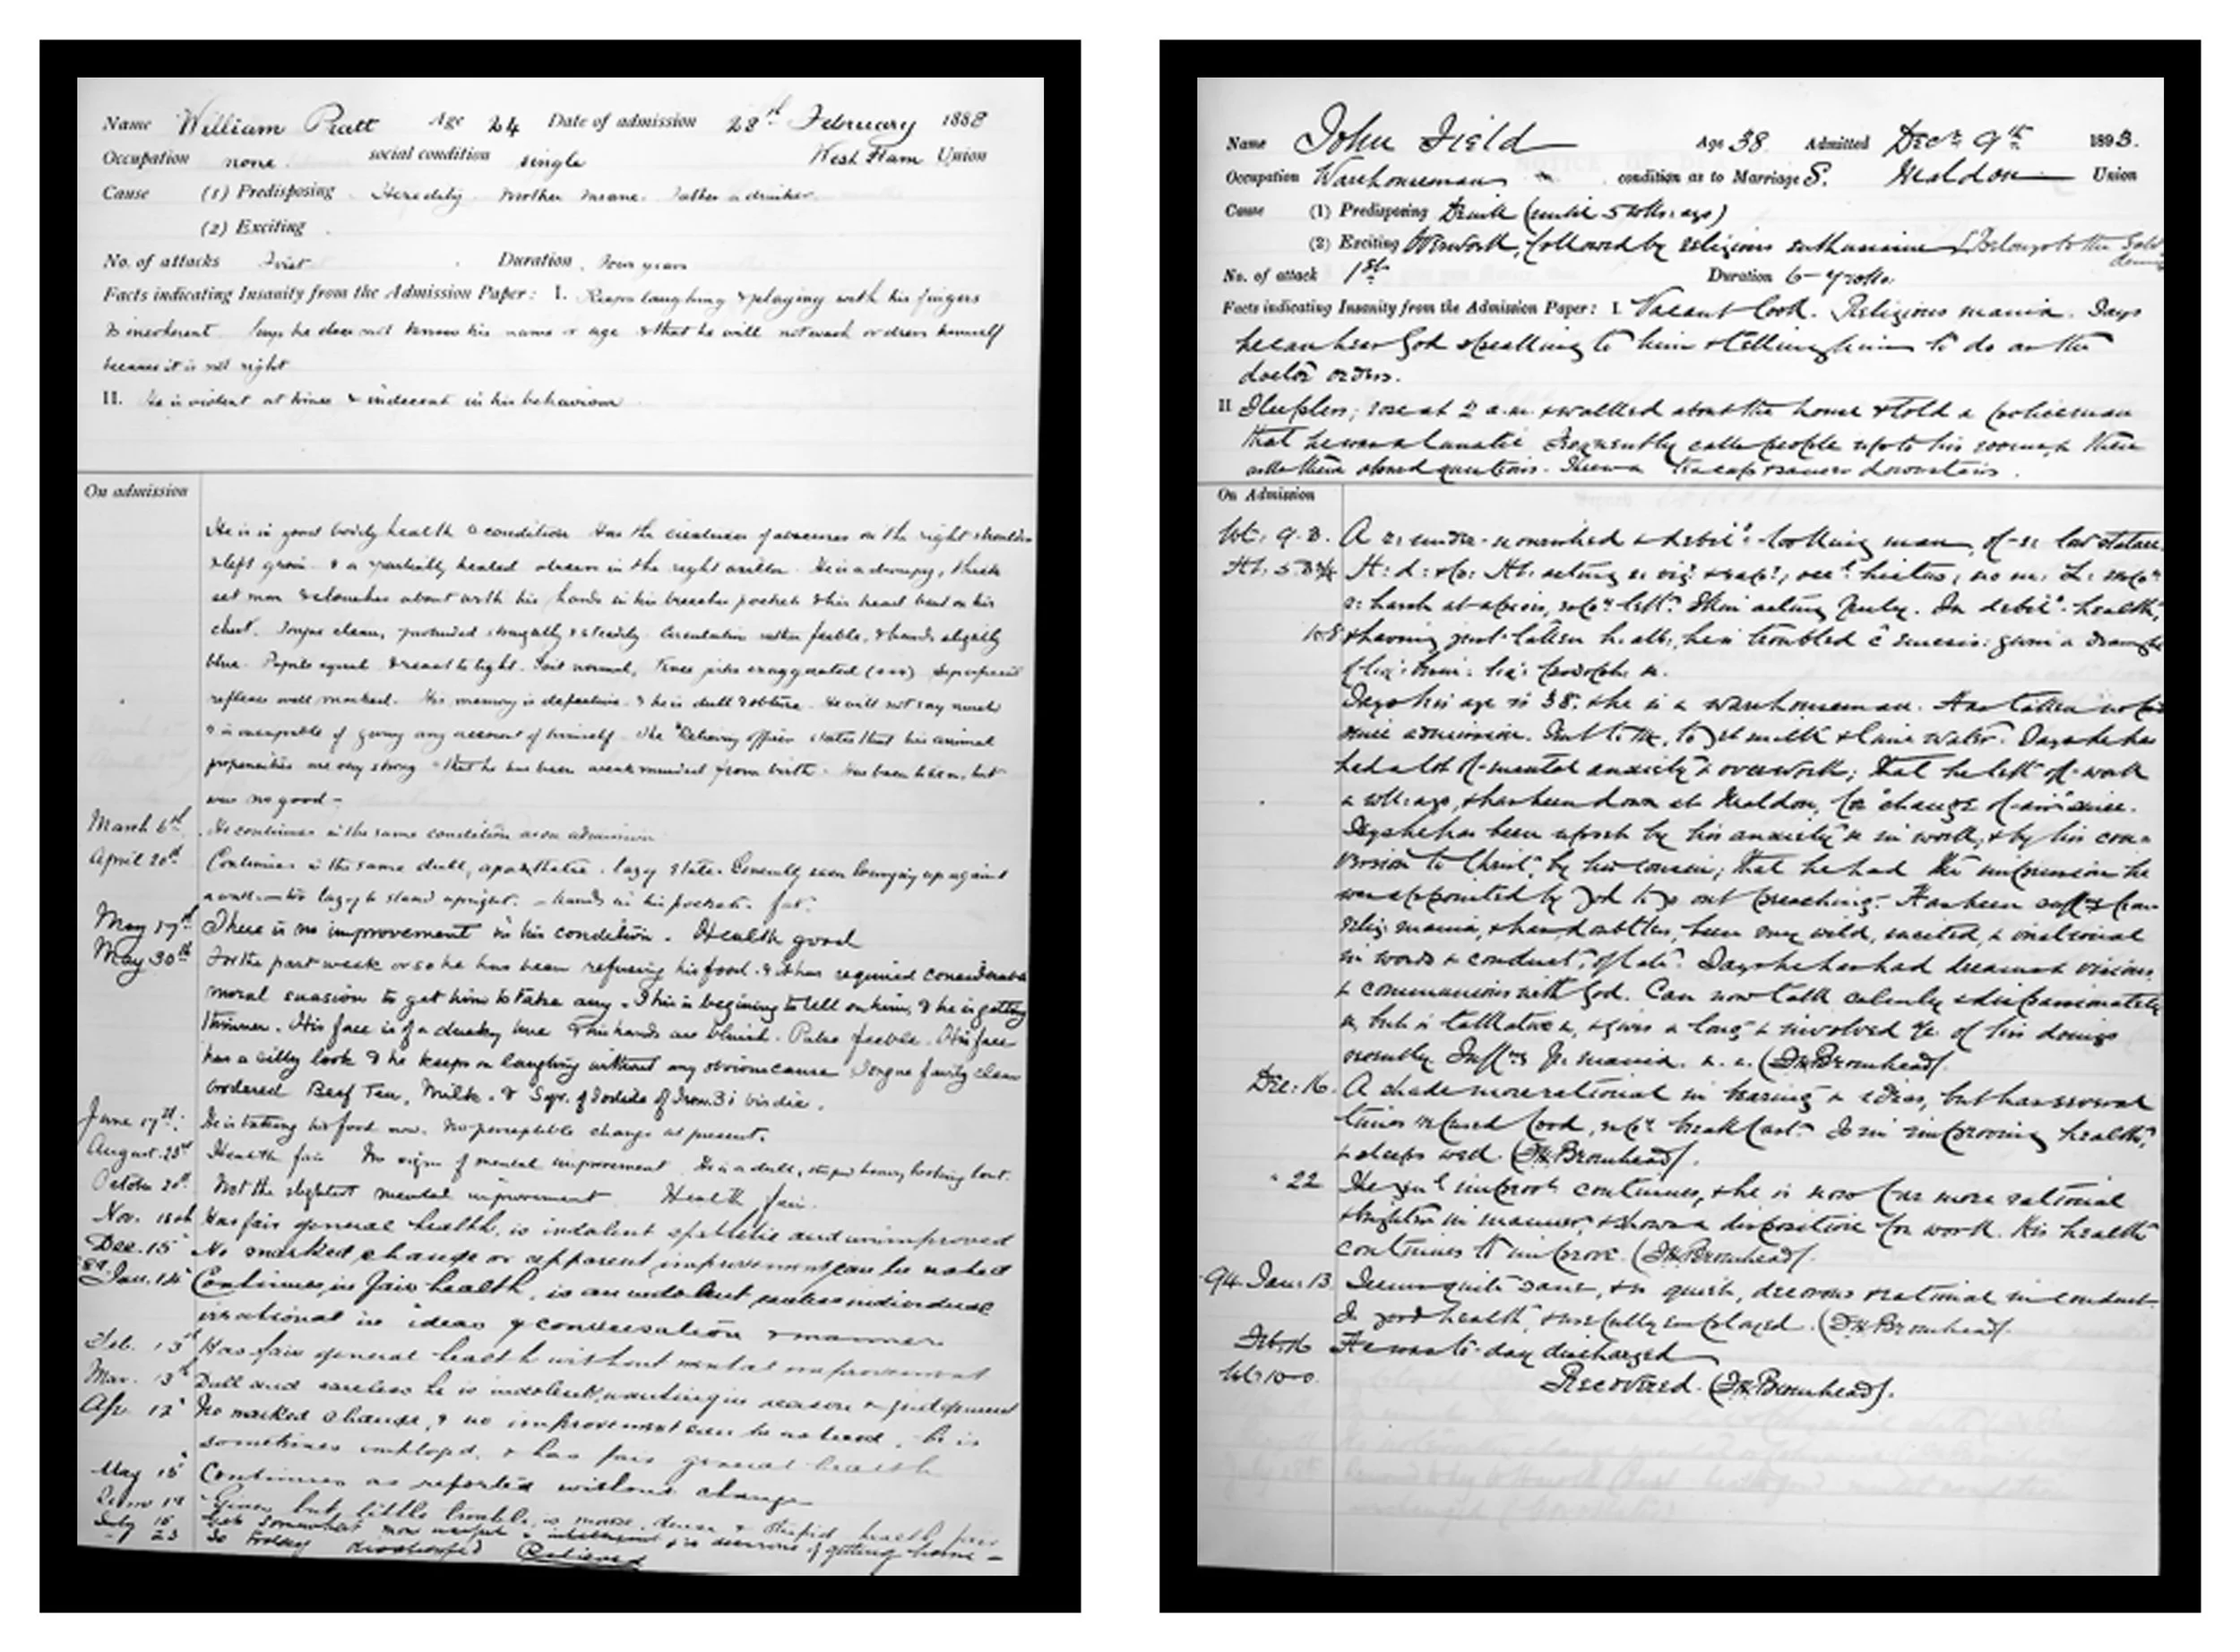 Name William Pratt Age 24 Date of admission 28th February 1888
Occupation none. social condition single West Ham Union
Cause (1) Predisposing Heredity. Mother Insane. Father a drinker.
(2) Exciting
No. of attacks First Duration four years
Facts indicating Insanity from the Admission Paper: I. Keeps laughing & playing with his fingers
Is incoherent. Says he does not know his name or age & that he will not wash or dress himself
because it is not right
II. He is violent at times & indecent in his behaviour
On admission
He is in good bodily health & condition Has the cicatrices of abscesses on the right shoulder
& left groin & a partially healed abscess in the right axilla. He is a dumpy, thick
set man & slouches about with his hands in his breeches pockets & his head bent on his
chest. Tongue clean, protruded straightly & steadily. Circulation rather feeble, & hands slightly
blue. Pupils equal & react to light. Gait normal, Knee jerks exaggerated Superficial
reflexes well marked. His memory is defective & he is dull & obtuse. He will not say much
& is incapable of giving any account of himself. The Relieving officer states that his animal
propensities are very strong that he has been weak minded from birth. Has been but
was no good -
March 6th He continues in the same condition as on admission
April 20th Continues in the same dull, apathetic, lazy state. Generally seen lounging up against
a wall - too lazy to stand upright. - hands in his pockets. fat.
May 17th There is no improvement in his condition. Health good
May 30th For the past week or so he has been refusing his food & it has required considerable
moral suasion to get him to take any. This is begining to tell on him, & he is getting
thinner. His face is of a dusky hue & his hands are bluish. Pulse feeble. His face
has a silly look & he keeps on laughing without any obvious cause Tongue fairly clean
ordered Beef Tea, Milk. & Syr. of Iodide of Iron. 3i bis die.
June 17th. He is taking his food now. No perceptible change at present.
August. 23rd Health fair No sign of mental improvement He is a dull, stupid heavy looking lout.
October 20th. Not the slightest mental improvement Health fair.
Nov. 18th Has fair general health, is indolent apathetic and unimproved
Dec. 15 No marked change or apparent improvement can be noted
89. Jan. 14 Continues in fair health, is an indolent useless individual
irrational in ideas & conversation & manner
Feb. 13th Has fair general health without mental improvement
Mar. 13th Dull and careless he is indolent, wanting in reason & judgment
Apr 12 No marked change, & no improvement can be noticed, he is
sometimes employed, & has fair general health
May 15 Continues as reported without change
June 14 Gives but little trouble, is morose, dense & stupid health fair
July 15 Gets somewhat more useful & intelligent & is desirous of getting home -
23 Is today discharged Relieved
Name John Field Age 38 Admitted Decr 9th 1893.
Occupation Warehouseman condition as to Marriage S. Maldon Union
Cause (1) Predisposing Drink (until 5 wks: ago)
(2) Exciting Overwork, followed by religious enthusiasm [Belongs to the Salv
No. of attack 1st Duration 6-7 wks.
Facts indicating Insanity from the Admission Paper: I. Vacant look. Religious mania. Says
he can hear God speaking to him & telling him to do as the
doctor orders.
II Sleepless, rose at 2 a.m. & walked about the house & told a policeman
that he was a lunatic Frequently calls people up to his room & then
asks them absurd questions. Threw a teacup & saucer downstairs.
On Admission
Wt. 9.8. A under-nourished & debil: looking man, of low stature.
Ht. 5.
health,
& having just taken h. alb, he is troubled c̄ emesis: given a draught
Says his age is 38, & he is a warehouseman. Has taken no food
since admission. to get milk & lime water. Says he has
had a lot of mental anxiety & overwork; that he left off work
a wk: ago, & has been down at Maldon, for "change of air" since.
Says he has been upset by his anxiety & in work, & by his con-
version to Christ, by his cousin; that he had the impression he
was appointed by God to go out preaching. Has been suffg from
relig: mania, & has doubtless, been very wild, excited, & irrational
in words & conduct, of late. Says he has had dreams & visions,
& communions with God. Can now talk calmly & dispassionately
but is talkative, & gives a long & involved a/c of his doings
recently. (FH Bromhead).
Dec: 16. A shade more rational in bearing & ideas, but has several
times refused food, breakfast. Is in improving health,
& sleeps well. (FH Bromhead).
" 22 The improvt continues, & he is now far more rational
& brighter in manner, & shows a disposition for work. His health
continues to improve. (FH Bromhead).
94. Jan: 13 Seems quite sane, & is quiet, decorous & rational in conduct.
In good health, & usefully employed. (FH Bromhead).
Feb. 16 He was to-day discharged
Wt: 10-0. Recovered. (FH Bromhead).